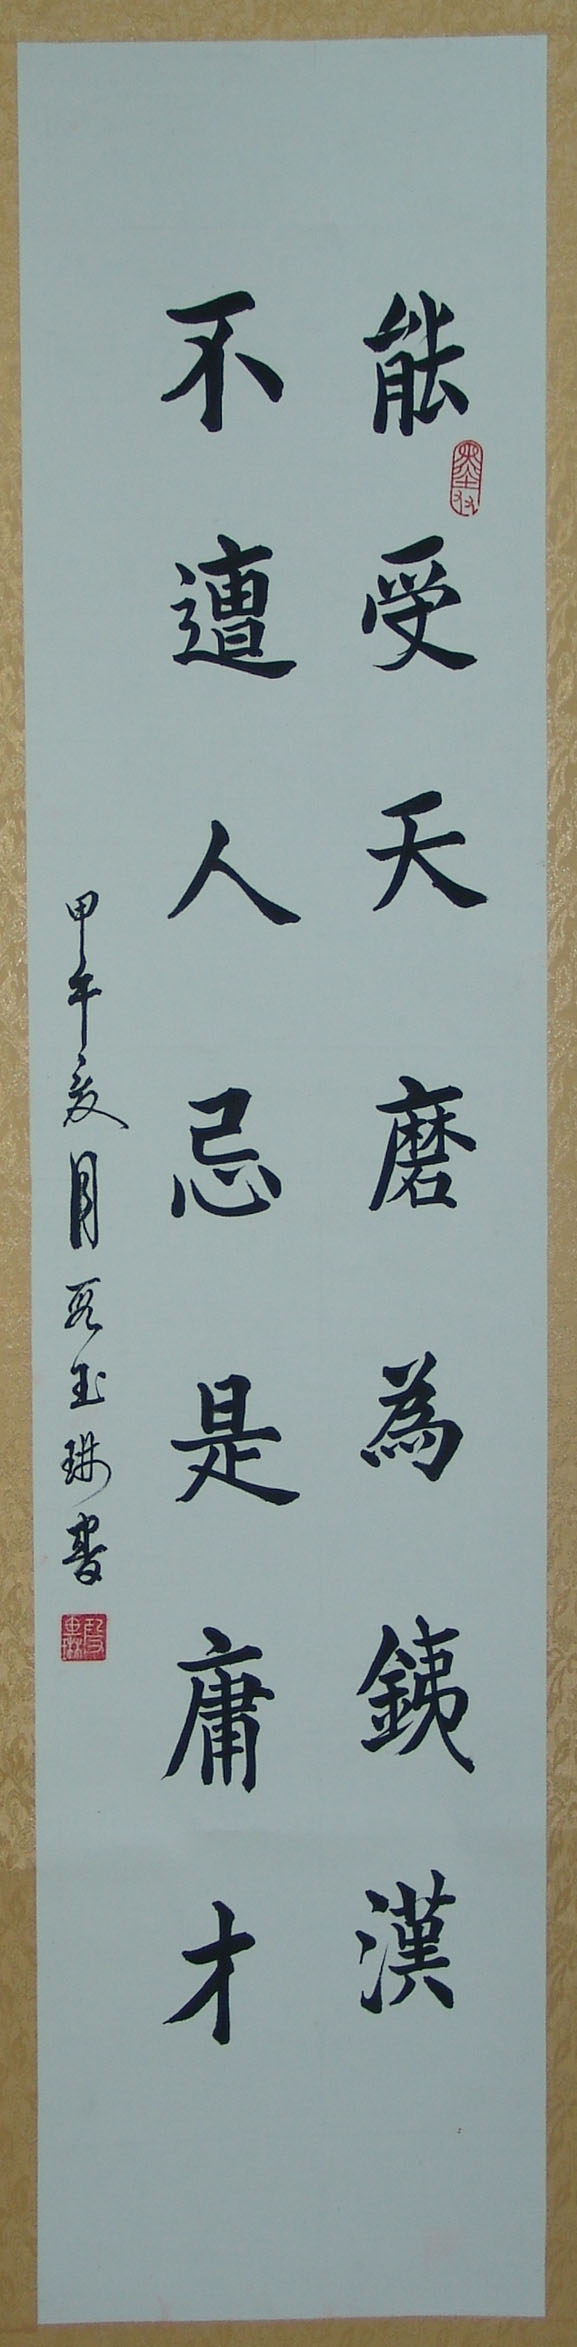 能受天磨為銕漢
不遭人忌是庸才
甲午夏月 玉琳書